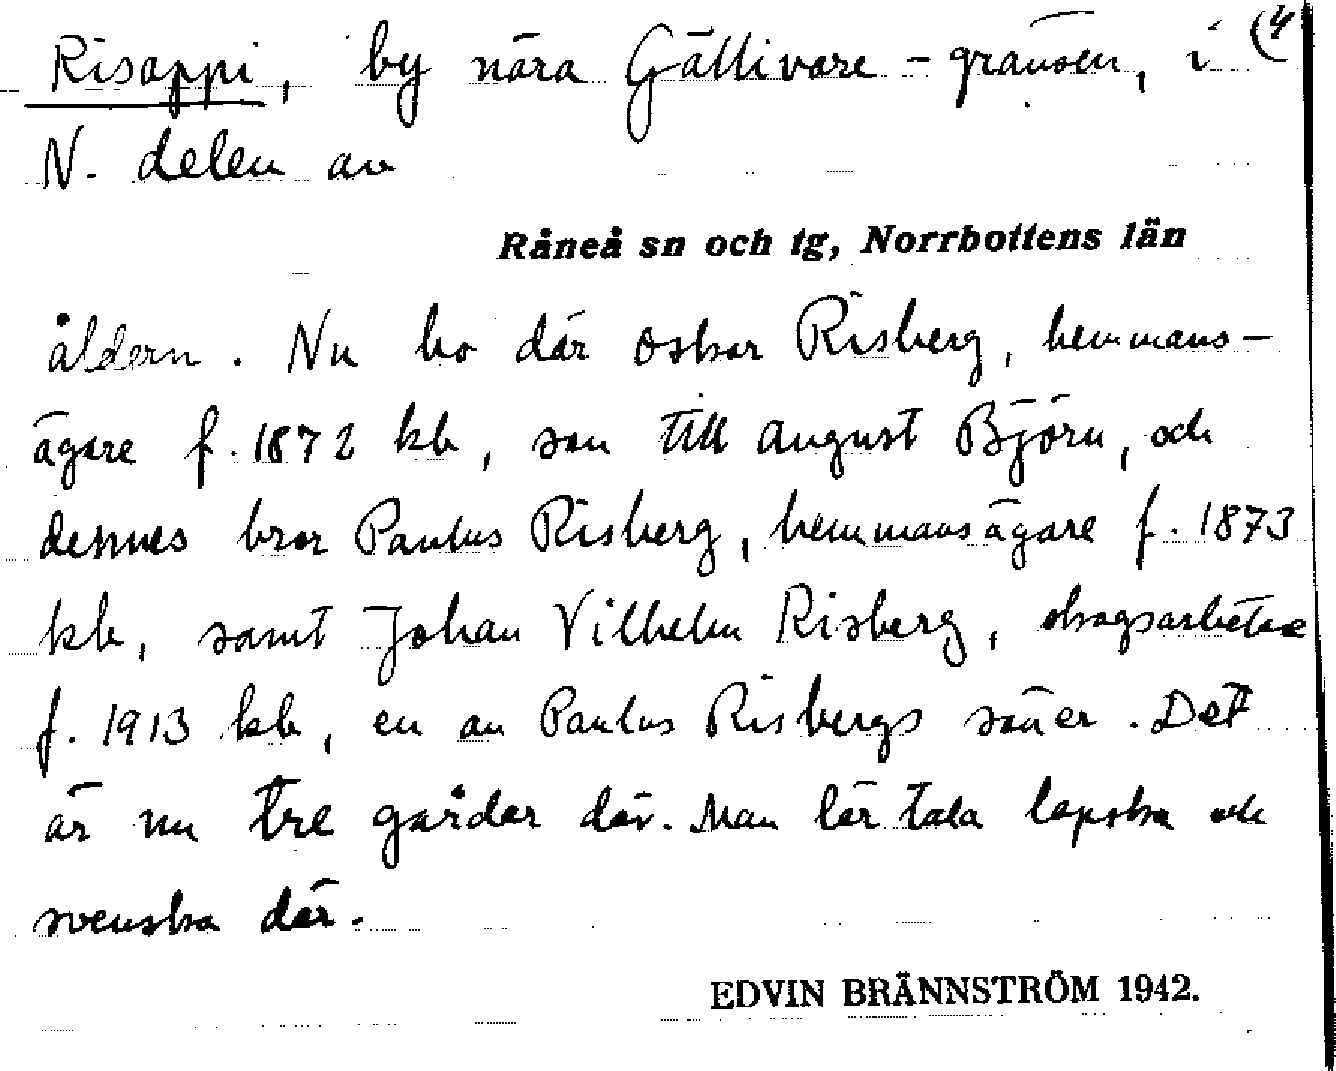 Risappi, by nära Gällivare-gränsen, i (4
N. delen av
Råneå sn och tg, Norrbottens län
åldern. Nu bo där Oskar Risberg, hemmans-
ägare f. 1872 kb, son till August Björn, och
dennes bror Paulus Risberg, hemmansägare f. 1873
kb, samt Johan Vilhelm Risberg, skogsarbetare
f. 1913 kb, en av Paulus Risbergs söner. Det
är nu tre gårdar där. Man lär tala lapska och
svenska där.
EDVIN BRÄNNSTRÖM 1942.